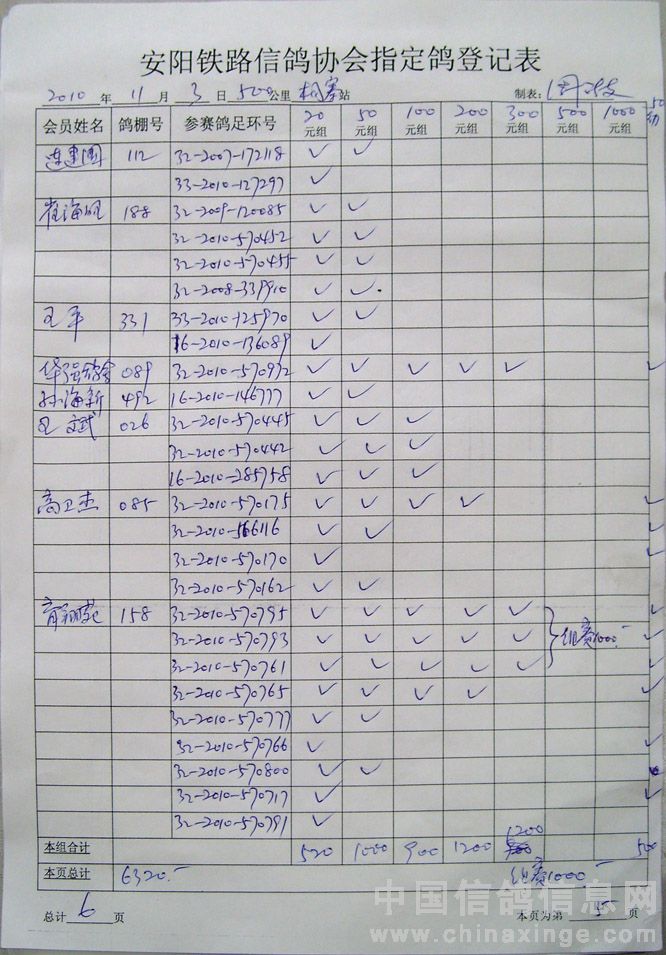 安阳铁路信鸽协会指定鸽登记表
2010 年 11 月 3 日 500 公里 站 制表:
会员姓名 鸽棚号 参赛鸽足环号 20元组 50元组 100元组 200元组 300元组 500元组 1000元组 50
连建国 112 32-2007-172118 ✓ ✓
33-2010-127297 ✓
崔海旺 188 32-2009-120085 ✓ ✓
32-2010-570452 ✓ ✓
32-2010-570455 ✓ ✓
32-2008-339910 ✓ ✓
王平 331 33-2010-125970 ✓ ✓
16-2010-136089 ✓
华强鸽舍 089 32-2010-570972 ✓ ✓ ✓ ✓ ✓ ✓
孙海新 492 16-2010-146777 ✓ ✓
王文斌 026 32-2010-570445 ✓ ✓ ✓
32-2010-570442 ✓ ✓ ✓
16-2010-285758 ✓ ✓ ✓
高卫杰 085 32-2010-570175 ✓ ✓ ✓ ✓ ✓
32-2010-566116 ✓ ✓ ✓
32-2010-570170 ✓ ✓
32-2010-570162 ✓ ✓
158 32-2010-570795 ✓ ✓ ✓ ✓ ✓ ✓
32-2010-570793 ✓ ✓ ✓ ✓ ✓ 组赛1000.- ✓
32-2010-570761 ✓ ✓ ✓ ✓ ✓ ✓
32-2010-570765 ✓ ✓ ✓ ✓ ✓
32-2010-570777 ✓ ✓
32-2010-570766 ✓ ✓
32-2010-570800 ✓ ✓
32-2010-570717 ✓ ✓
32-2010-570791 ✓
本组合计 520 1000 900 1200 1200 500
本页总计 6320.- 组赛1000.-
总计 6 页 本页为第 5 页
中国信鸽信息网
www.chinaxinge.com